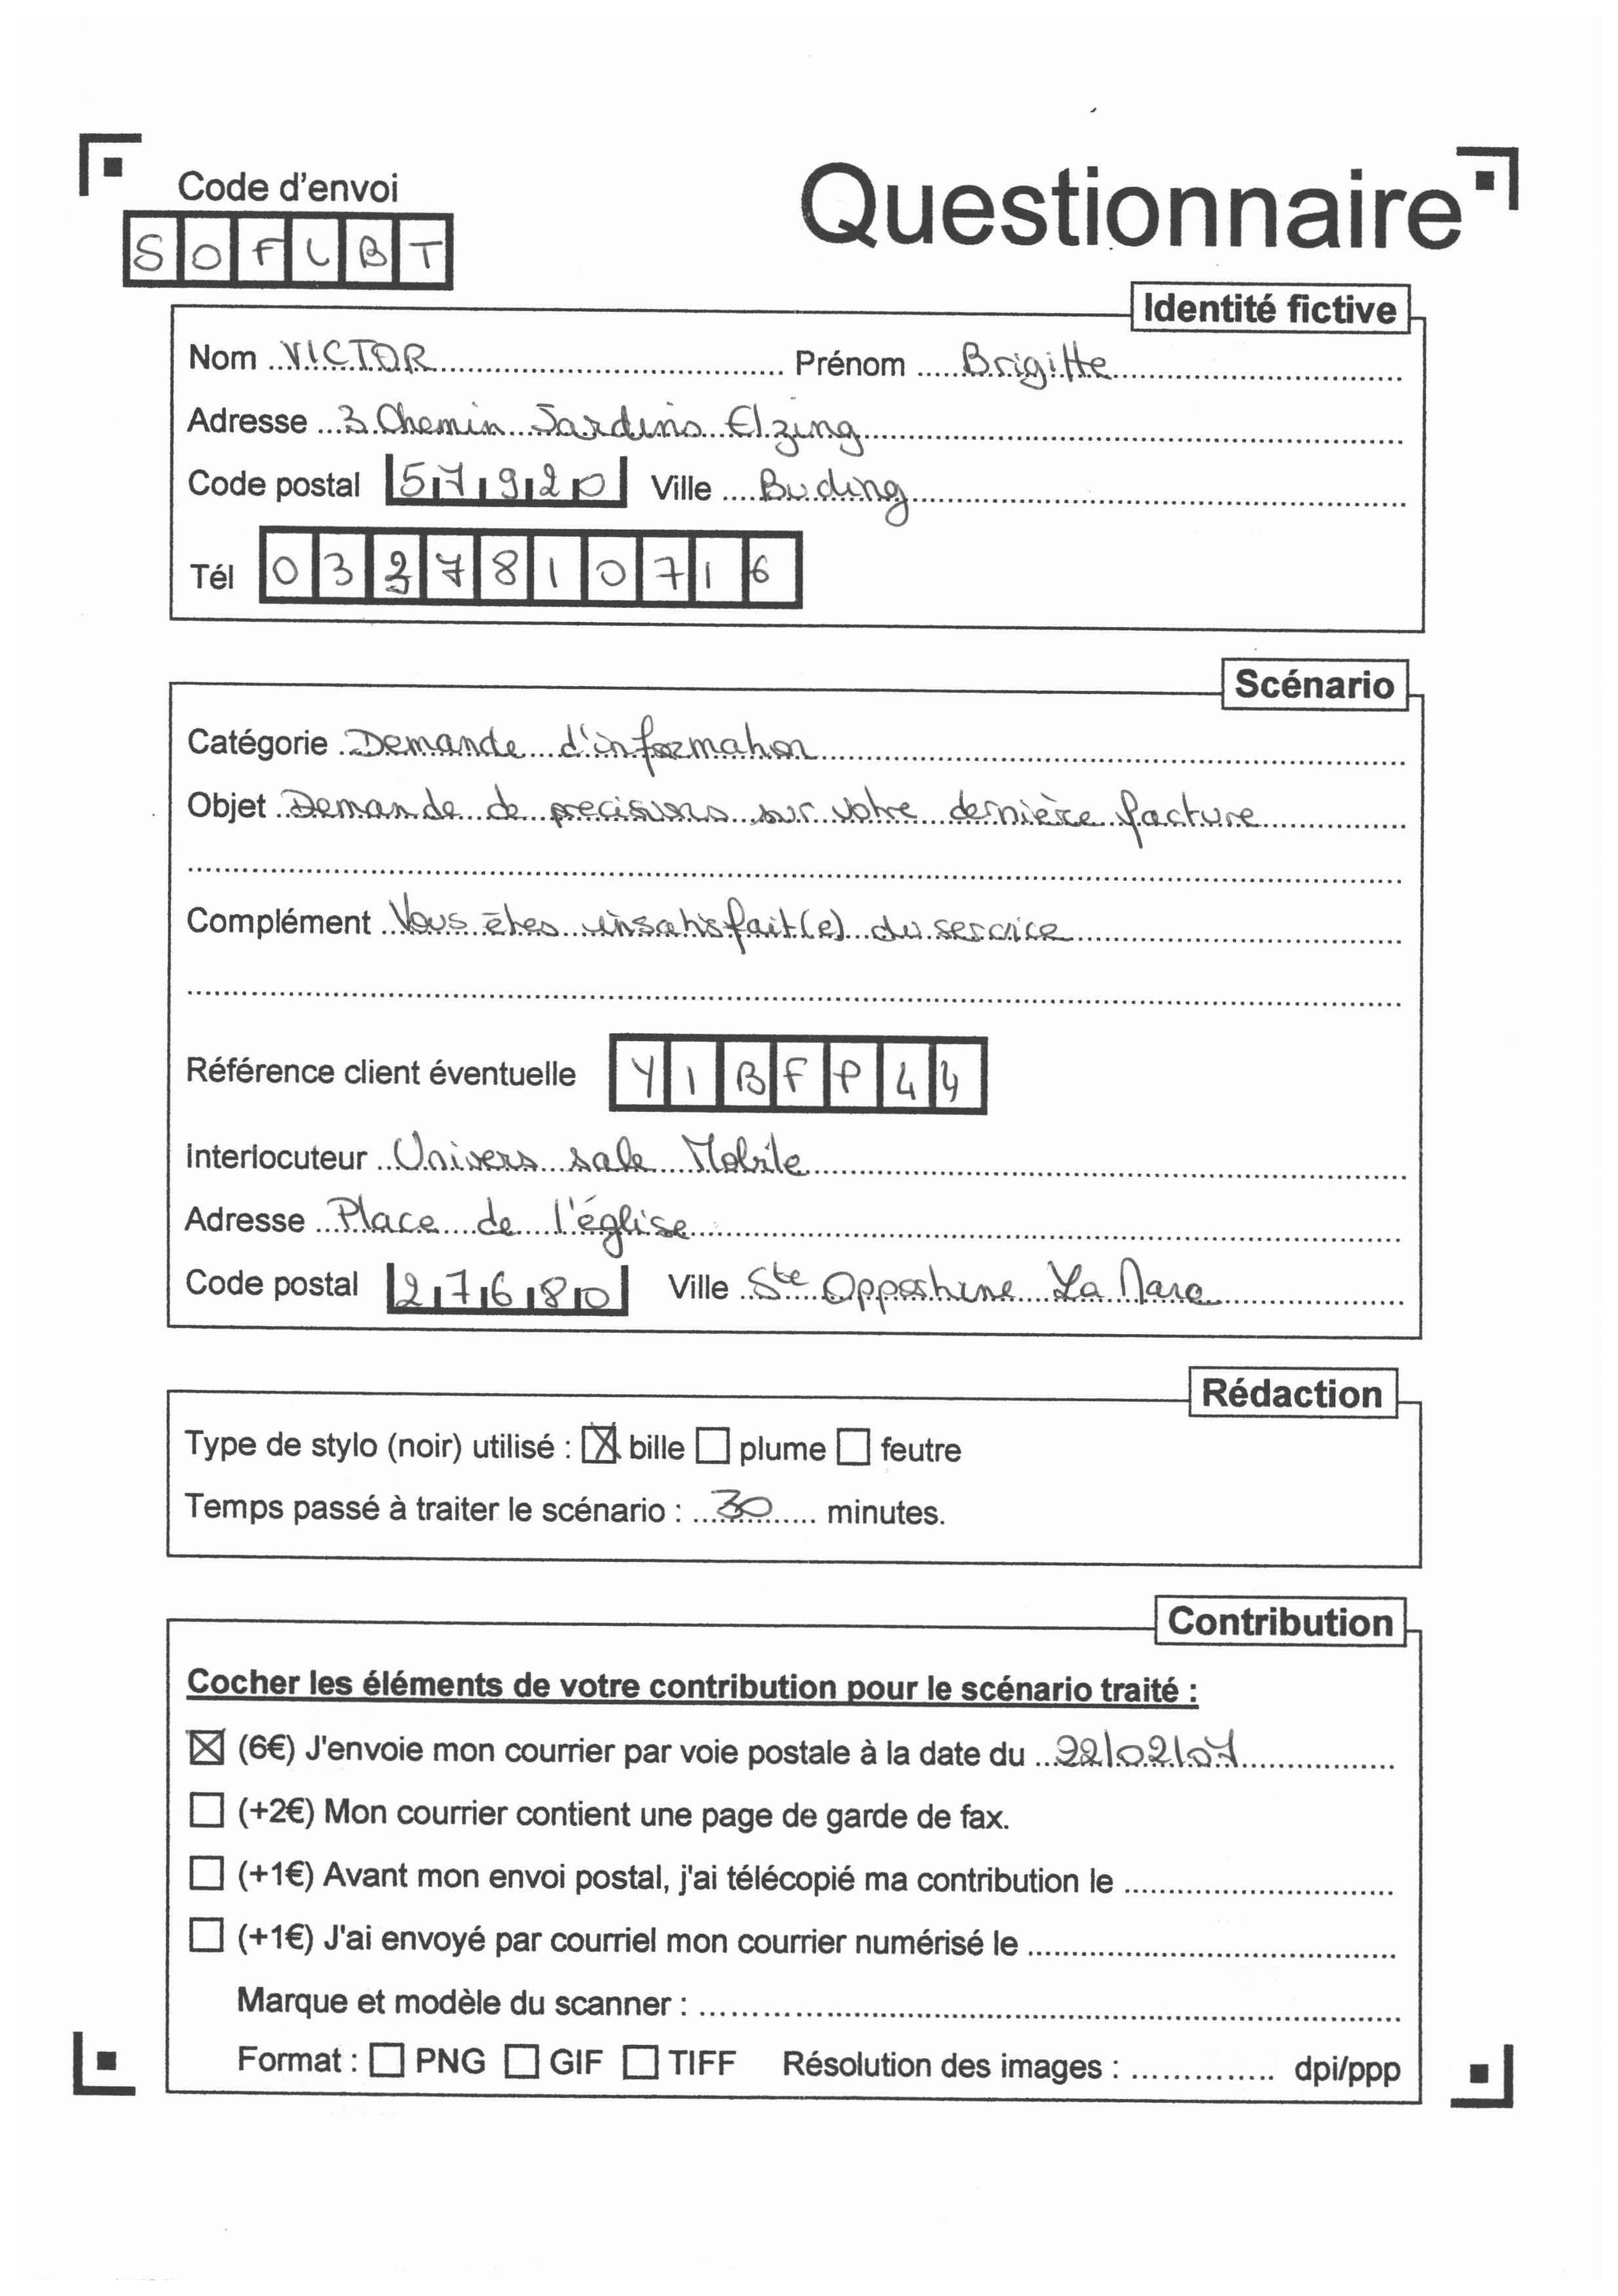 Code d'envoi
Questionnaire
S O F L B T
Identité fictive
Nom VICTOR Prénom Brigitte
Adresse 3 Chemin Jardins Elzing
Code postal 57920 Ville Buding
Tél 03 7810716
Scénario
Catégorie Demande d'information
Objet Demande de precisions sur votre dernière facture
Complément Vous êtes insatisfait(e) du service
Référence client éventuelle Y I B F P 4 4
Interlocuteur Univers sale Mobile
Adresse Place de l'église
Code postal 27680 Ville Ste Opportune La Mare
Rédaction
Type de stylo (noir) utilisé : bille plume feutre
Temps passé à traiter le scénario : 30 minutes.
Contribution
Cocher les éléments de votre contribution pour le scénario traité :
(6€) J'envoie mon courrier par voie postale à la date du 22/02/07
(+2€) Mon courrier contient une page de garde de fax.
(+1€) Avant mon envoi postal, j'ai télécopié ma contribution le
(+1€) J'ai envoyé par courriel mon courrier numérisé le
Marque et modèle du scanner :
Format : PNG GIF TIFF Résolution des images : dpi/ppp